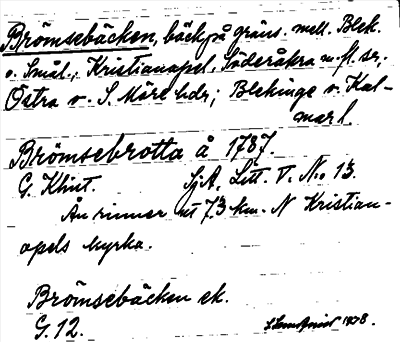 Brömsebäcken, bäck på gräns. mell. Blek.
o. Smål., Kristianopel, Söderåkra m. fl. sr,
Östra o. S. Möre hdr; Blekinge o. Kal-
mar l.
Brömsebrotta å 1787.
G. Klint. SjA, Litt. V. No 13.
Ån rinner ut 7.3 km. N Kristian-
opels kyrka.
Brömsebäcken ek.
G. 12.
1938.